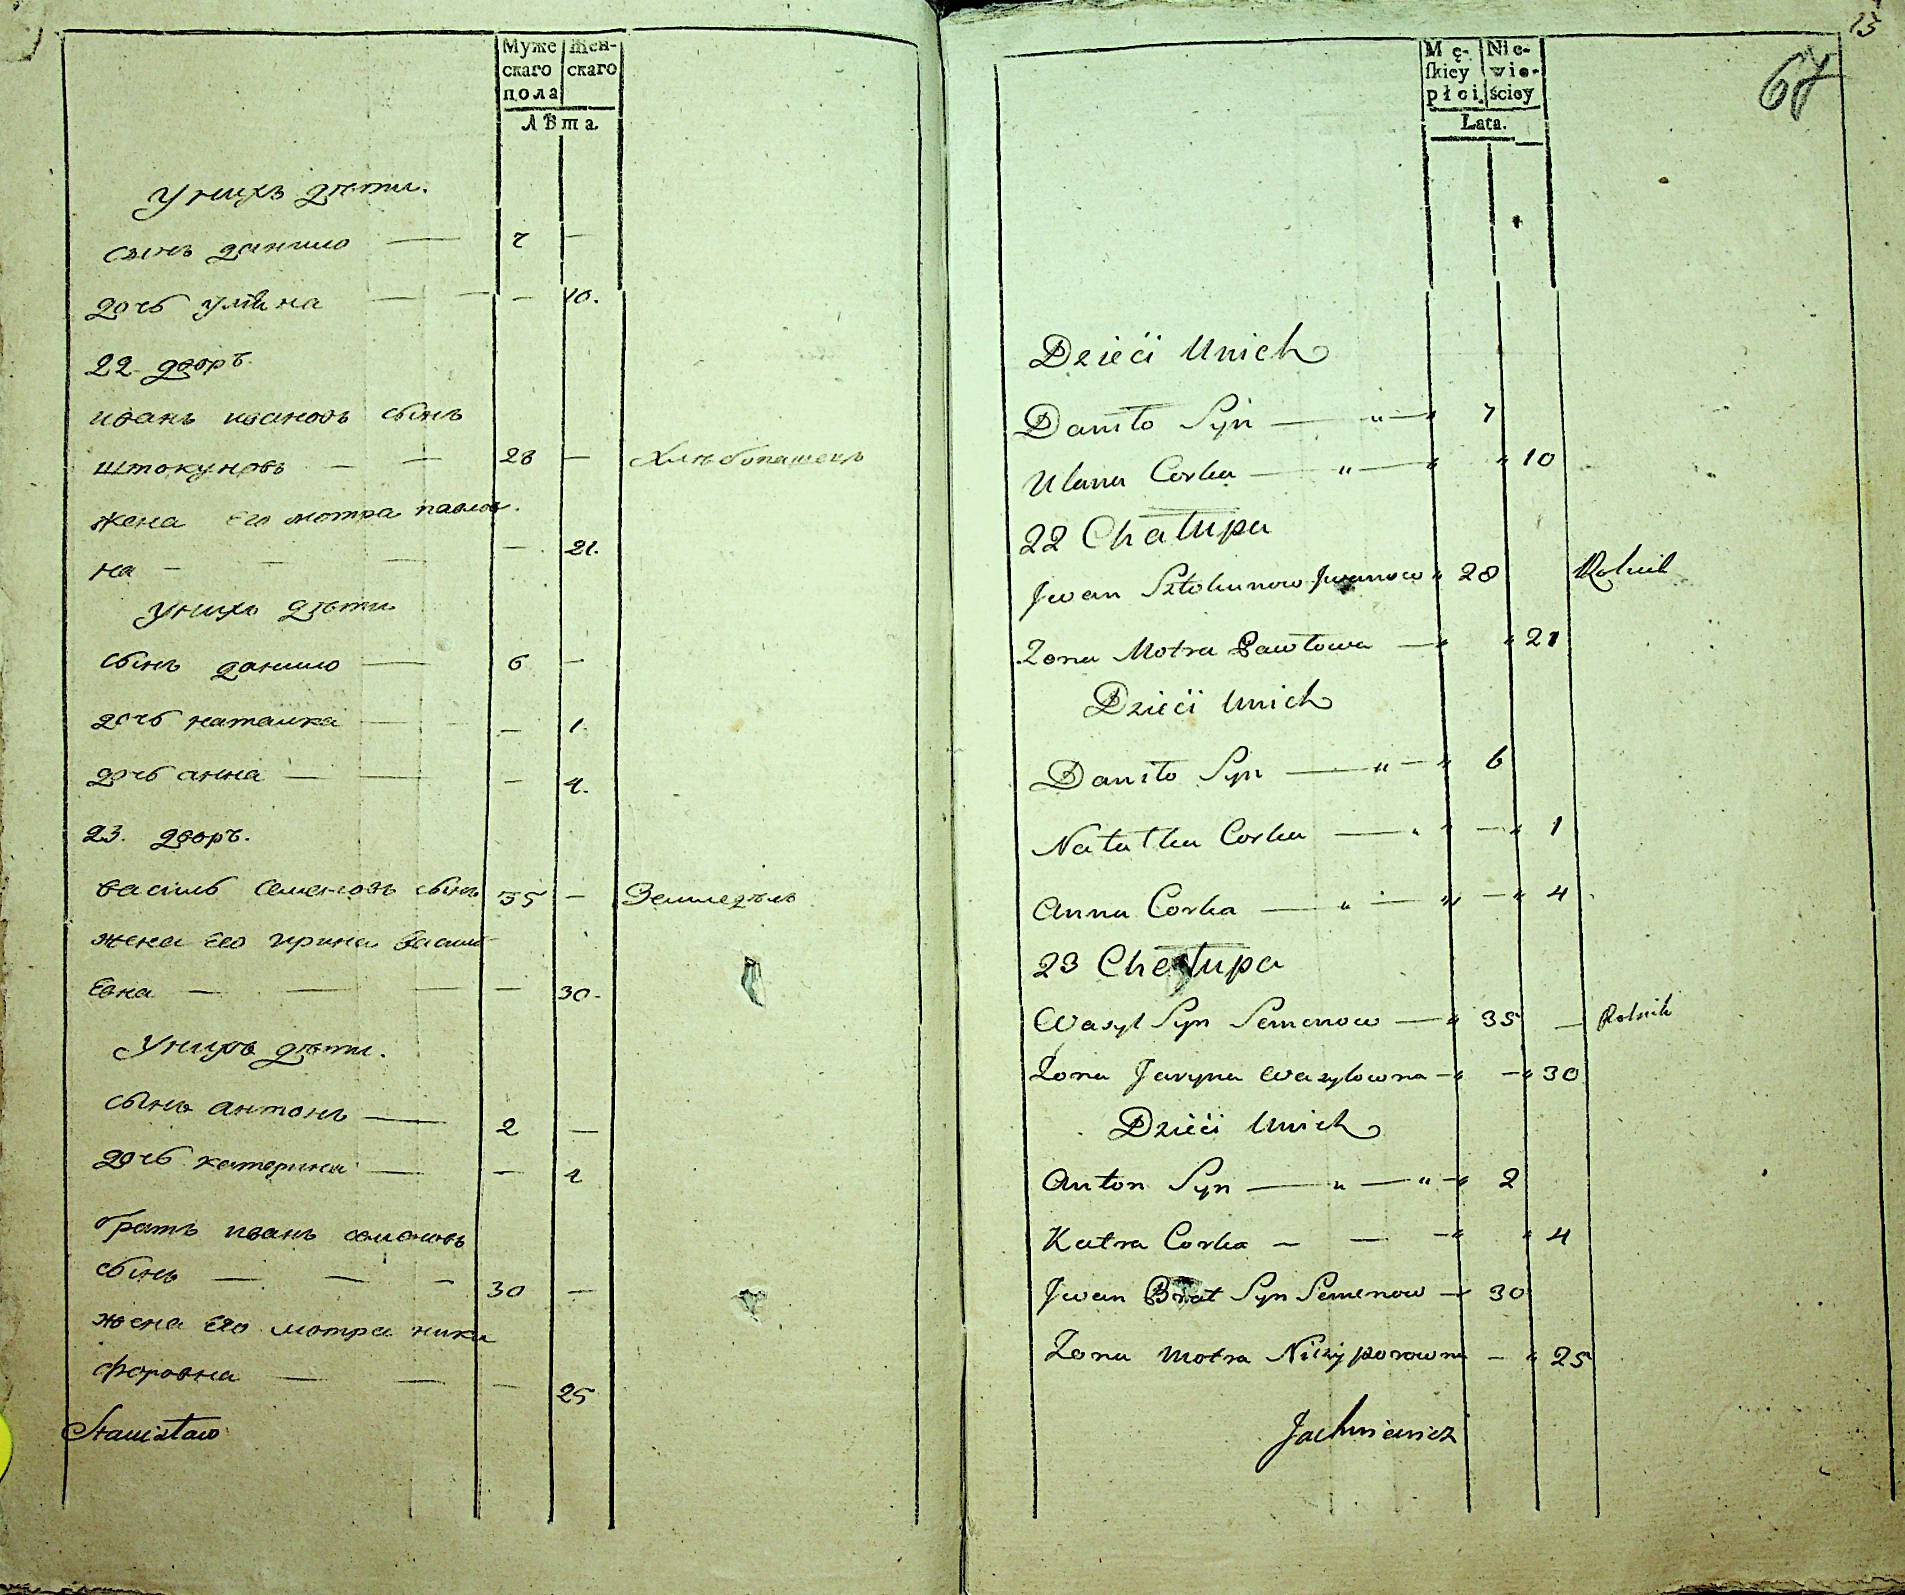 Муже
скаго
пола
Жен-
скаго
Лѣта.
у нихъ дѣти.
сынъ данило — 7 —
дочь уляна — — — 10.
22 дворъ.
иванъ ивановъ сынъ
штокуновъ — — 28 — Хлѣбопашецъ
жена его мотра павлов
на — — — — 21.
у нихъ дѣти
сынъ данило — 6 —
дочь наталка — — — 1.
дочь анна — — — 4.
23. дворъ.
василь семеновъ сынъ 35 — Земледѣль
жена его ирина васил
евна — — — — 30.
у нихъ дѣти.
сынъ антонъ — 2 —
дочь катерина — — 4
братъ иванъ семеновъ
сынъ — — — 30 —
жена его мотра ники
форовна — — — 25
Stanisław
13
67
Mę-
skiey
płci.
Nie-
wie-
ściey
Lata.
Dzieći Unich
Daniło Syn — " — " 7
Ulana Corka — " — " " 10
22 Chałupa
Jwan Sztokunow Jwanow " 28 Rolnik
Zona Motra Pawłowa — " " 21
Dzieći Unich
Daniło Syn — " — " 6
Natałka Corka — " " — " 1
Anna Corka — " — " — " 4
23 Chałupa
Wasyl Syn Semenow — " 35 — Rolnik
Zona Jaryna Wasylowna — " — " 30
Dzieći Unich
Anton Syn — " — " — " 2
Katra Corka — — — " " 4
Jwan Brat Syn Semenow — " 30
Zona Motra Niczyporowna — " 25
Jachniewicz